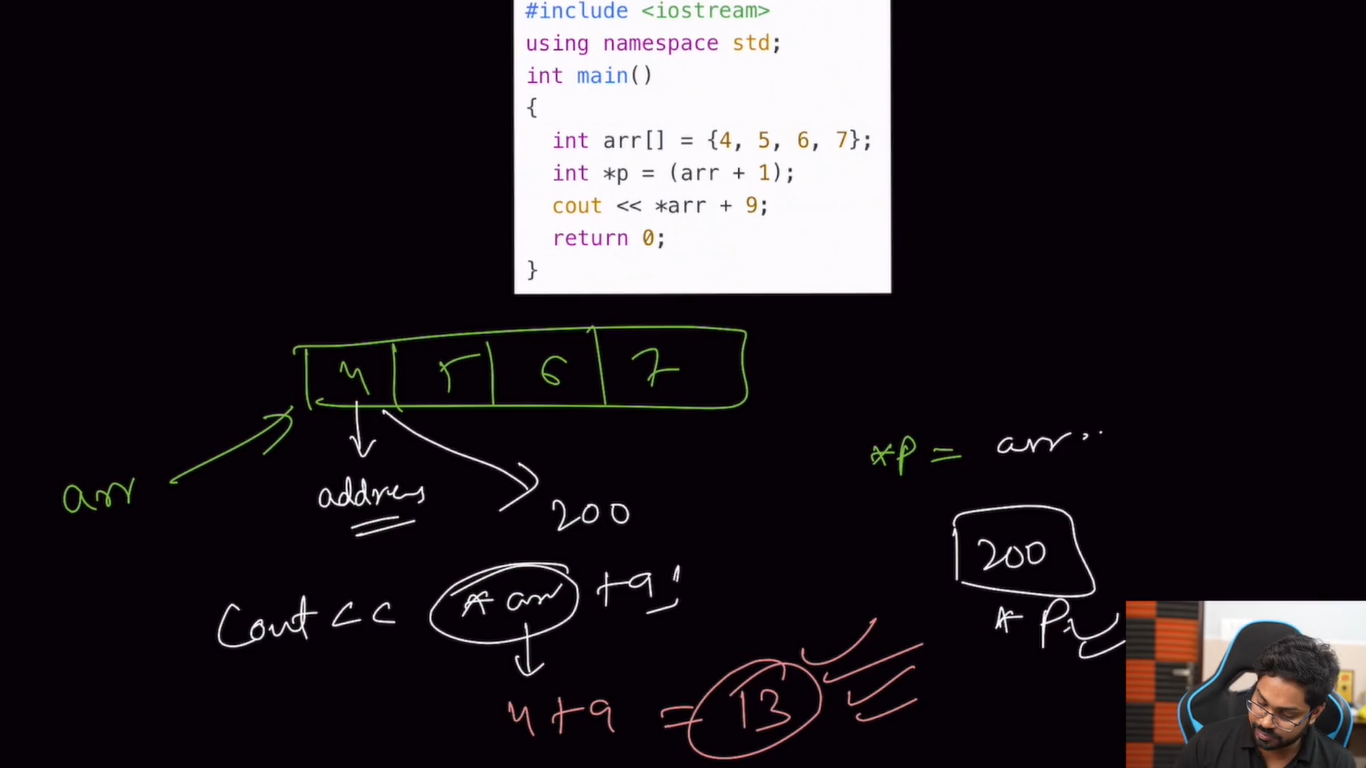 #include <iostream>
using namespace std;
int main()
{
int arr[] = {4, 5, 6, 7};
int *p = (arr + 1);
cout << *arr + 9;
return 0;
}
4 5 6 7
*p = arr..
arr
address
200
200
Cout << *arr +9;
*P
4+9 = 13